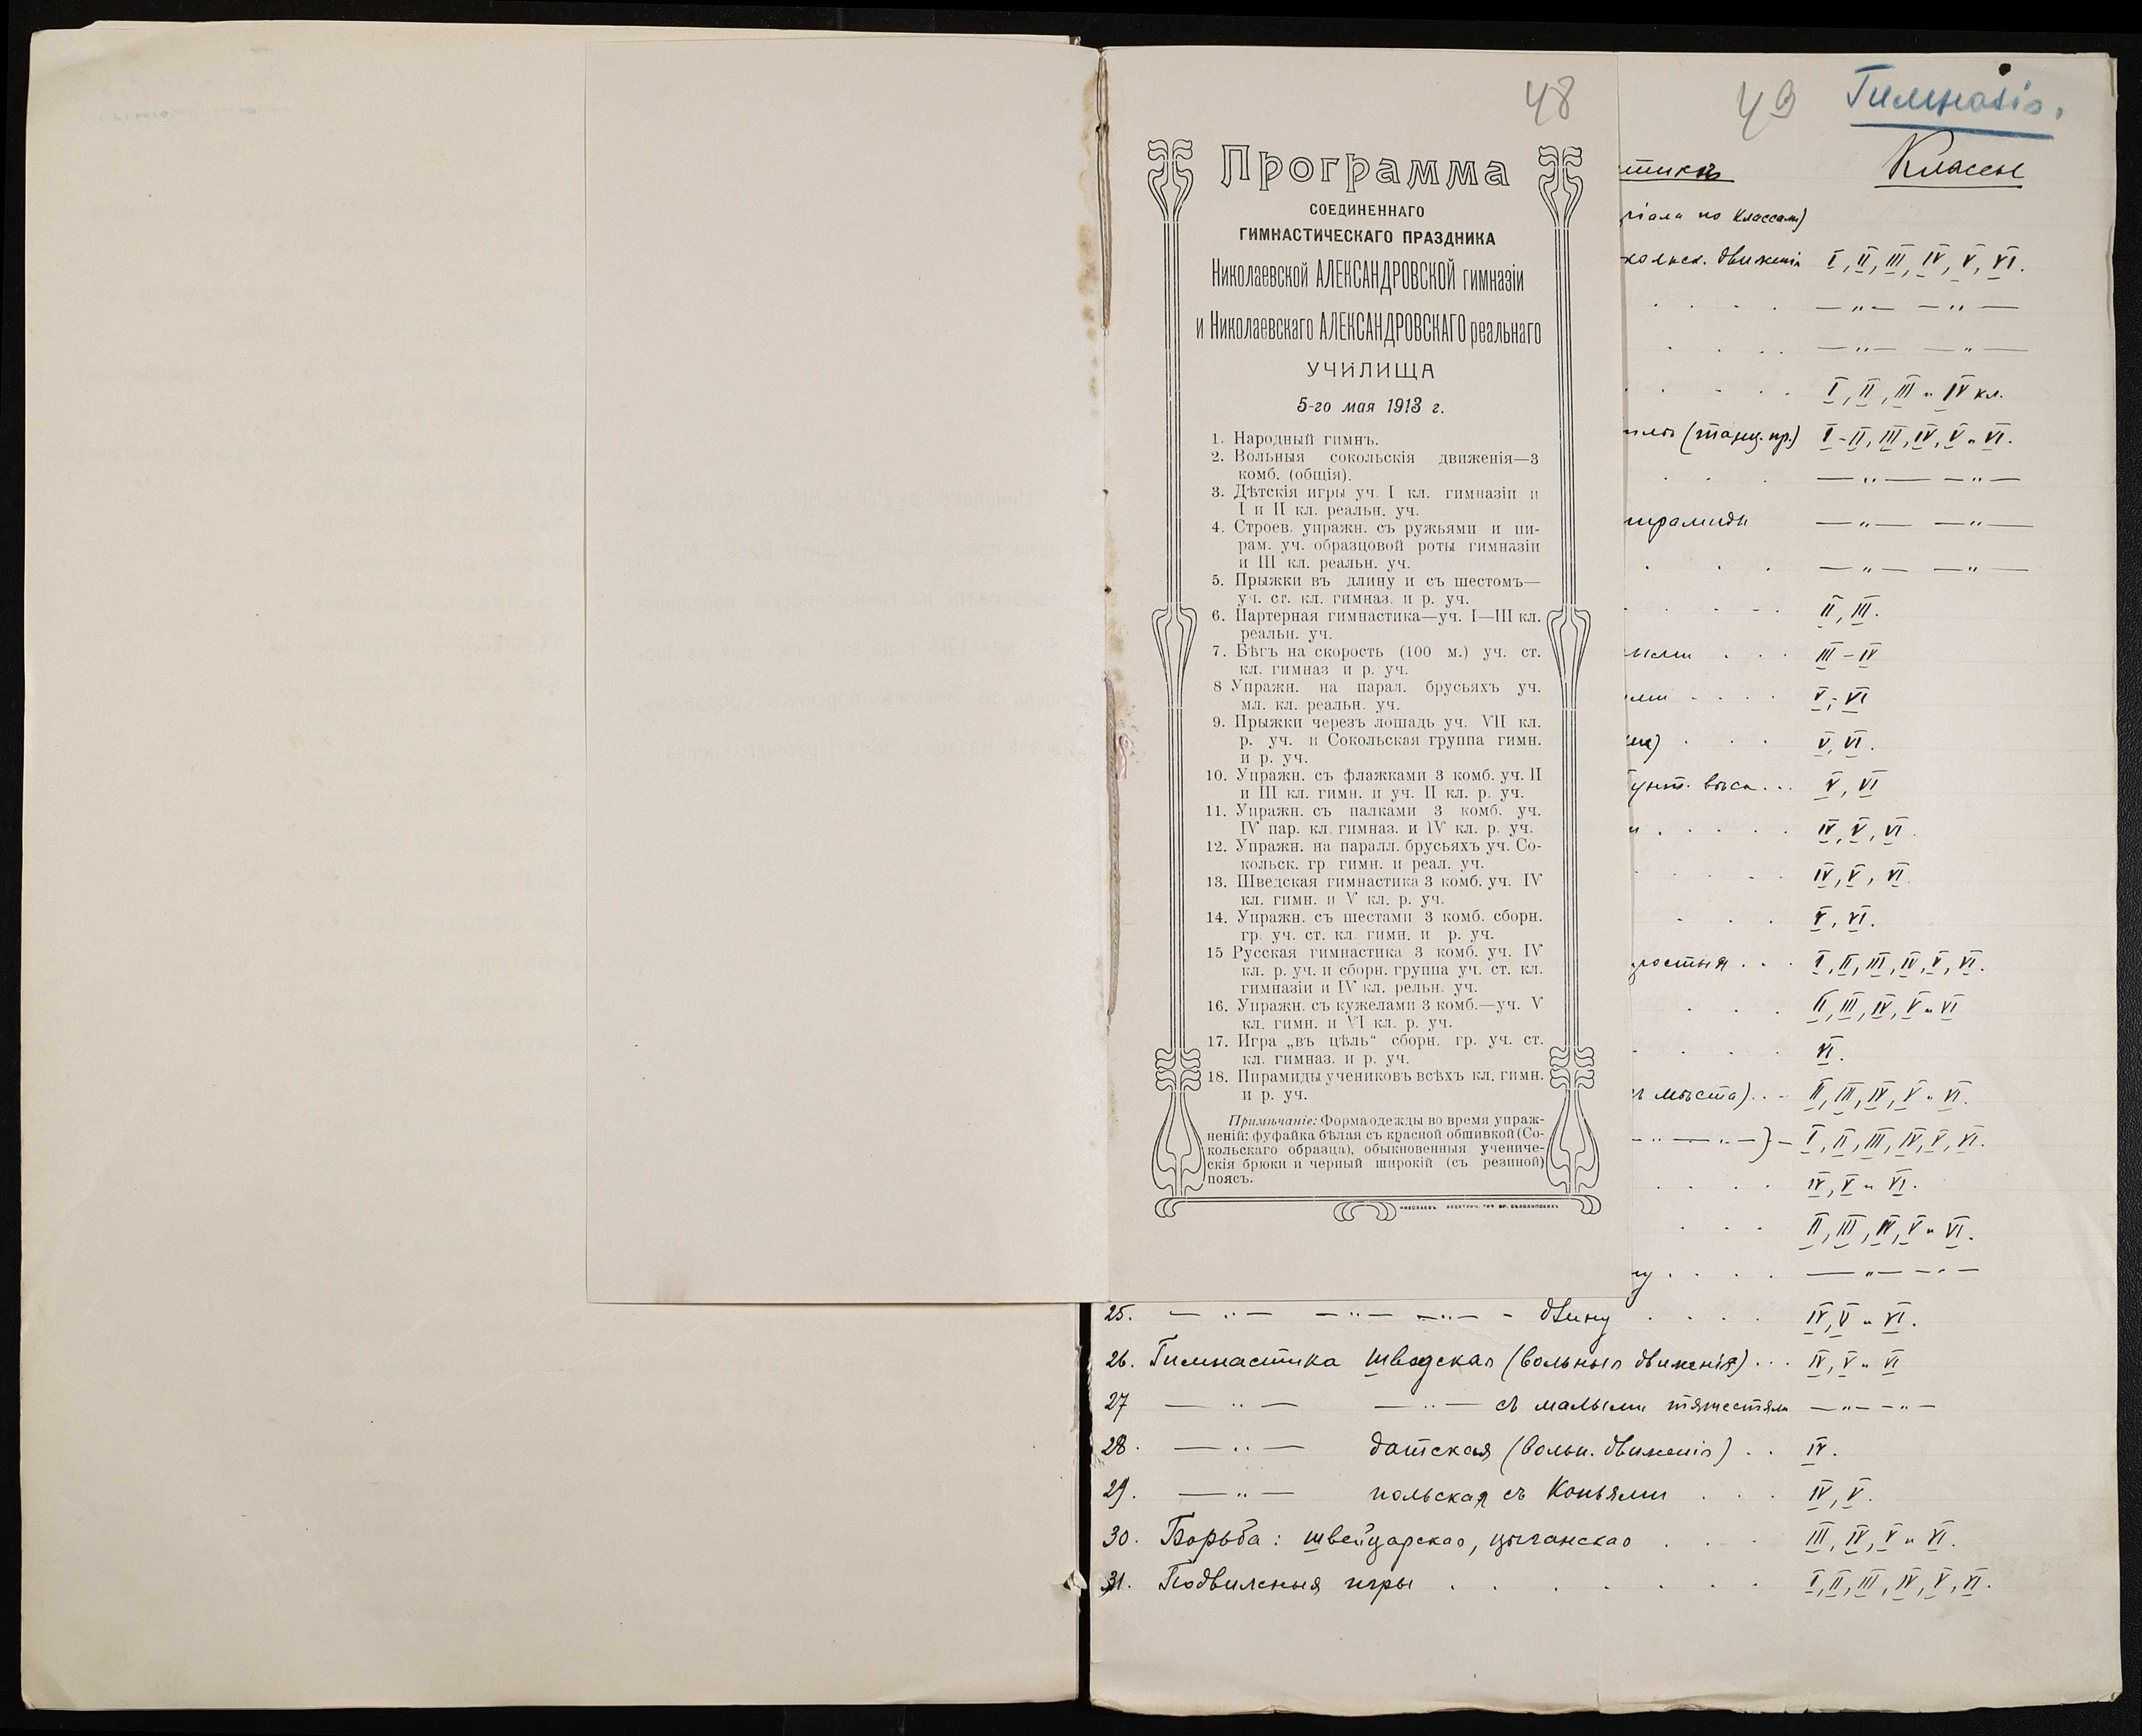 48
Программа
СОЕДИНЕННАГО
ГИМНАСТИЧЕСКАГО ПРАЗДНИКА
Николаевской АЛЕКСАНДРОВСКОЙ гимназіи
и Николаевскаго АЛЕКСАНДРОВСКАГО реальнаго
УЧИЛИЩА
5-го мая 1913 г.
1. Народный гимнъ.
2. Вольныя сокольскія движенія—3
комб. (общія).
3. Дѣтскія игры уч. I кл. гимназіи и
I и II кл. реальн. уч.
4. Строев. упражн. съ ружьями и пи-
рам. уч. образцовой роты гимназіи
и III кл. реальн. уч.
5. Прыжки въ длину и съ шестомъ—
уч. ст. кл. гимназ. и р. уч.
6. Партерная гимнастика—уч. I—III кл.
реальн. уч.
7. Бѣгъ на скорость (100 м.) уч. ст.
кл. гимназ и р. уч.
8 Упражн. на парал. брусьяхъ уч.
мл. кл. реальн. уч.
9. Прыжки черезъ лошадь уч. VII кл.
р. уч. и Сокольская группа гимн.
и р. уч.
10. Упражн. съ флажками 3 комб. уч. II
и III кл. гимн. и уч. II кл. р. уч.
11. Упражн. съ палками 3 комб. уч.
IV пар. кл. гимназ. и IV кл. р. уч.
12. Упражн. на паралл. брусьяхъ уч. Со-
кольск. гр. гимн. и реал. уч.
13. Шведская гимнастика 3 комб. уч. IV
кл. гимн. и V кл. р. уч.
14. Упражн. съ шестами 3 комб. сборн.
гр. уч. ст. кл. гимн. и р. уч.
15 Русская гимнастика 3 комб. уч. IV
кл. р. уч. и сборн. группа уч. ст. кл.
гимназіи и IV кл. рельн. уч.
16. Упражн. съ кужелами 3 комб.—уч. V
кл. гимн. и VI кл. р. уч.
17. Игра „въ цѣль“ сборн. гр. уч. ст.
кл. гимназ. и р. уч.
18. Пирамиды учениковъ всѣхъ кл. гимн.
и р. уч.
Примѣчаніе: Форма одежды во время упраж-
неній: фуфайка бѣлая съ красной обшивкой (Со-
кольскаго образца), обыкновенныя учениче-
скія брюки и черный широкій (съ резиной)
поясъ.
НИКОЛАЕВЪ ЭЛЕКТРИЧ. ТИП. БР. БѢЛОЛИПСКИХЪ
49 Гимназія.
стики Классы
ріала по классамъ)
кольск. движенія I, II, III, IV, V, VI.
— „ — — „ —
— „ — — „ —
I, II, III и IV кл.
(танц. пр.) I-II, III, IV, V и VI.
— „ — — „ —
ирамиды — „ — — „ —
— „ — — „ —
II, III.
III - IV
V, VI
V, VI.
V, VI
IV, V, VI.
IV, V, VI.
V, VI.
ростыя . . . I, II, III, IV, V, VI.
II, III, IV, V и VI
VI.
ъ мѣста) . . II, III, IV, V и VI.
— „ — „ —) — I, II, III, IV, V, VI.
IV, V и VI.
II, III, IV, V и VI.
— „ — — „ —
25. — „ — — „ — — „ — - длину . . . . IV, V и VI.
26. Гимнастика шведская (вольныя движенія) . . . IV, V и VI
27 — „ — — „ — съ малыми тяжестям — „ — — „ —
28. — „ — датская (вольн. движенія) . . IV.
29. — „ — польская съ копьями . . . IV, V.
30. Борьба: швейцарская, цыганская . . . III, IV, V и VI.
31. Подвижныя игры . . . . . . . I, II, III, IV, V, VI.